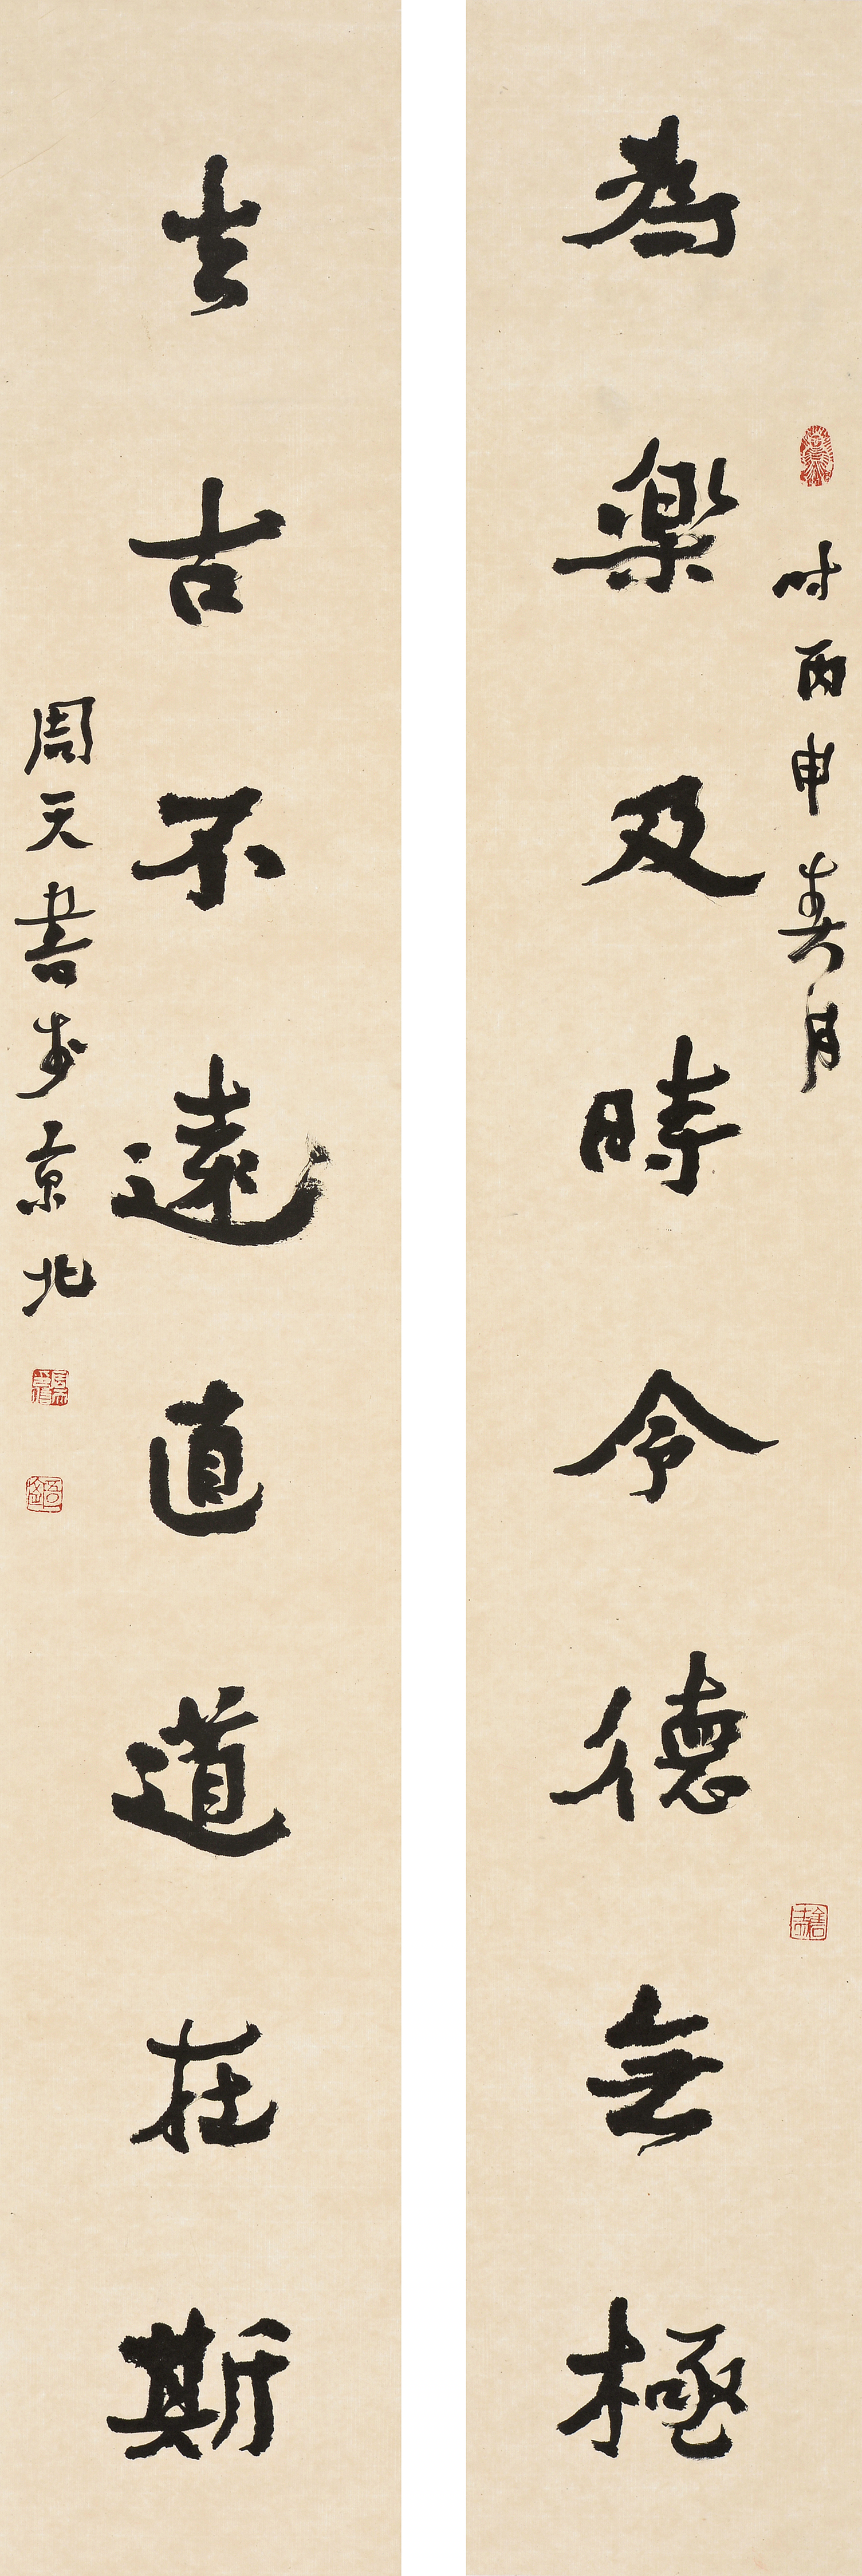 時丙申春月
為樂及時令德無極
去古不遠直道在斯
周天書於京北